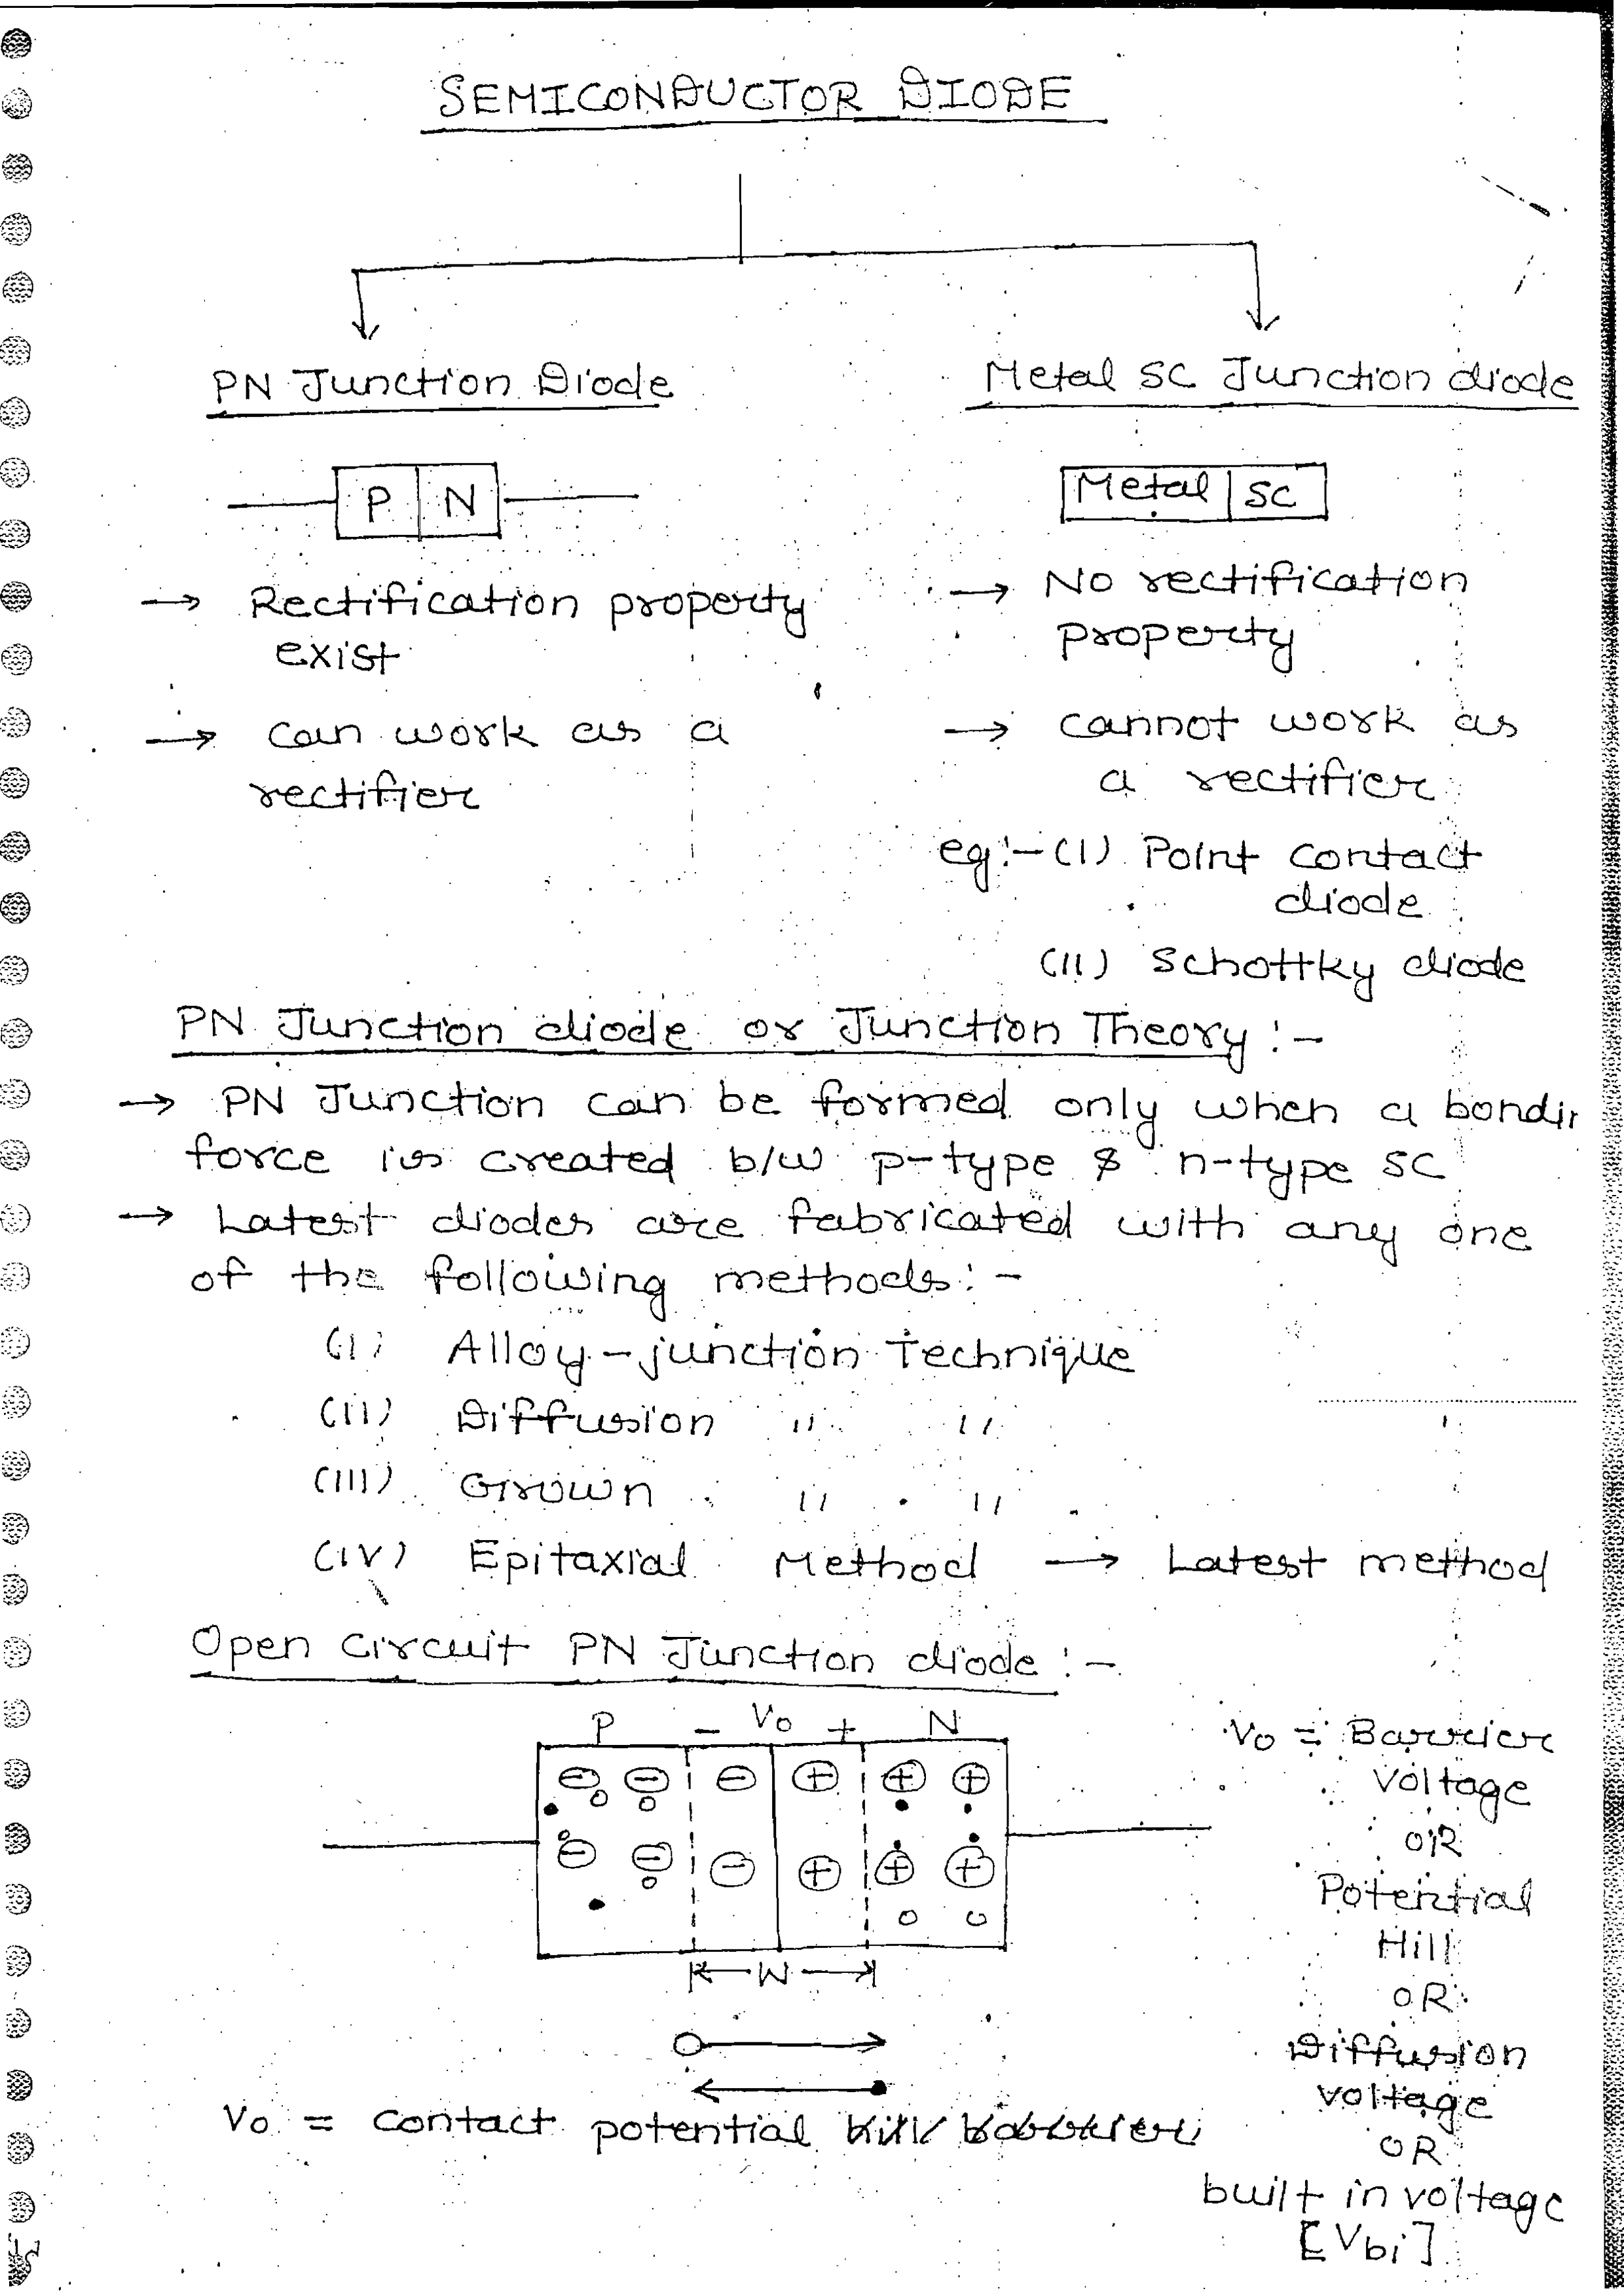 SEMICONDUCTOR DIODE
PN Junction Diode
Metal SC Junction diode
P N
Metal SC
→ Rectification property
exist
→ can work as a
rectifier
→ No rectification
property
→ cannot work as
a rectifier
eg:- (I) Point contact
diode
(II) Schottky diode
PN Junction diode or Junction Theory :-
→ PN Junction can be formed only when a bondin
force is created b/w p-type & n-type SC
→ Latest diodes are fabricated with any one
of the following methods:-
(I) Alloy-junction Technique
(II) Diffusion " "
(III) Grown " "
(IV) Epitaxial Method → Latest method
Open circuit PN Junction diode :-
P - V₀ + N
W
V₀ = Barrier
Voltage
OR
Potential
Hill
OR
Diffusion
voltage
OR
built in voltage
[Vbi]
V₀ = contact potential hill barrier